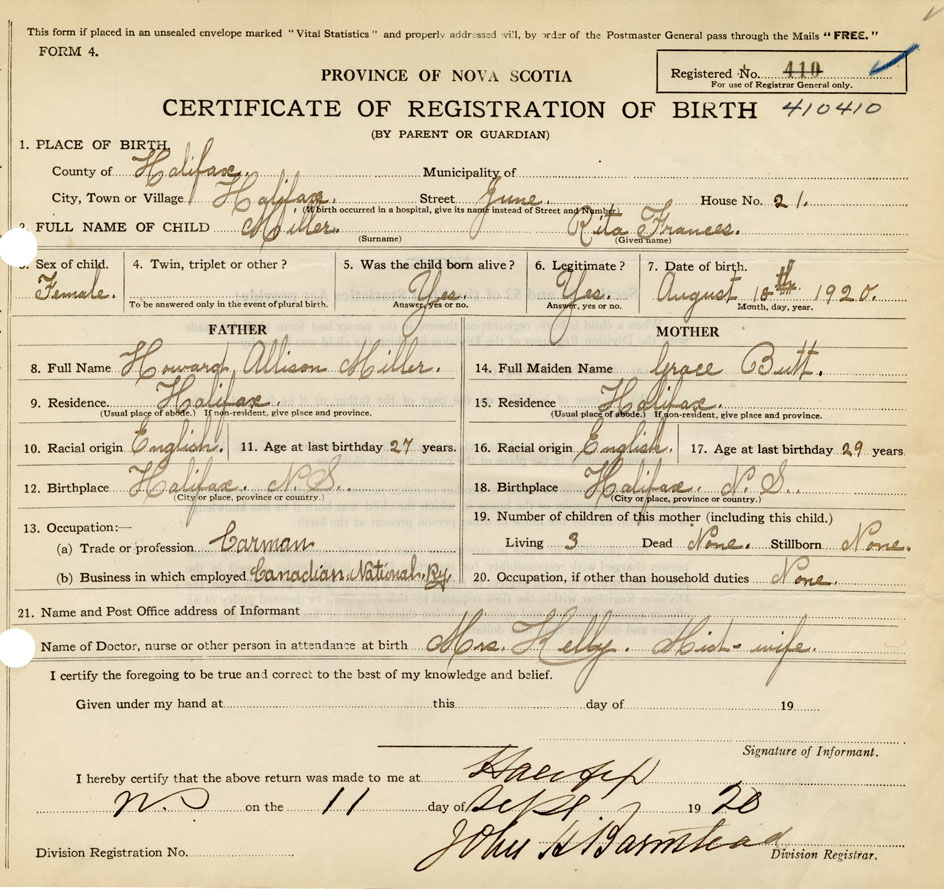 This form if placed in an unsealed envelope marked "Vital Statistics" and properly addressed will, by order of the Postmaster General pass through the Mails "FREE."
FORM 4.
PROVINCE OF NOVA SCOTIA
Registered No. 410
For use of Registrar General only.
CERTIFICATE OF REGISTRATION OF BIRTH 410410
(BY PARENT OR GUARDIAN)
1. PLACE OF BIRTH,
County of Halifax. Municipality of
City, Town or Village Halifax. Street June. House No. 21.
(If birth occurred in a hospital, give its name instead of Street and Number)
2. FULL NAME OF CHILD Miller. Rita Frances.
(Surname) (Given name)
3. Sex of child. 4. Twin, triplet or other? 5. Was the child born alive? 6. Legitimate? 7. Date of birth.
Female. Yes. Yes. August 18th 1920.
To be answered only in the event of plural birth. Answer, yes or no. Answer, yes or no. Month, day, year.
FATHER MOTHER
8. Full Name Howard Allison Miller. 14. Full Maiden Name Grace Butt.
9. Residence. Halifax. 15. Residence Halifax.
(Usual place of abode.) If non-resident, give place and province. (Usual place of abode.) If non-resident, give place and province.
10. Racial origin English. 11. Age at last birthday 27 years. 16. Racial origin English. 17. Age at last birthday 29 years.
12. Birthplace Halifax. N. S. 18. Birthplace Halifax. N. S.
(City or place, province or country.) (City or place, province or country.)
13. Occupation:— 19. Number of children of this mother (including this child.)
(a) Trade or profession Carman Living 3 Dead None. Stillborn None.
(b) Business in which employed Canadian National Ry 20. Occupation, if other than household duties None.
21. Name and Post Office address of Informant
Name of Doctor, nurse or other person in attendance at birth Mrs. Kelly. Mid-wife.
I certify the foregoing to be true and correct to the best of my knowledge and belief.
Given under my hand at this day of 19
Signature of Informant.
I hereby certify that the above return was made to me at Halifax
N.S on the 11 day of Sept 1920
John H Barnstead
Division Registration No. Division Registrar.